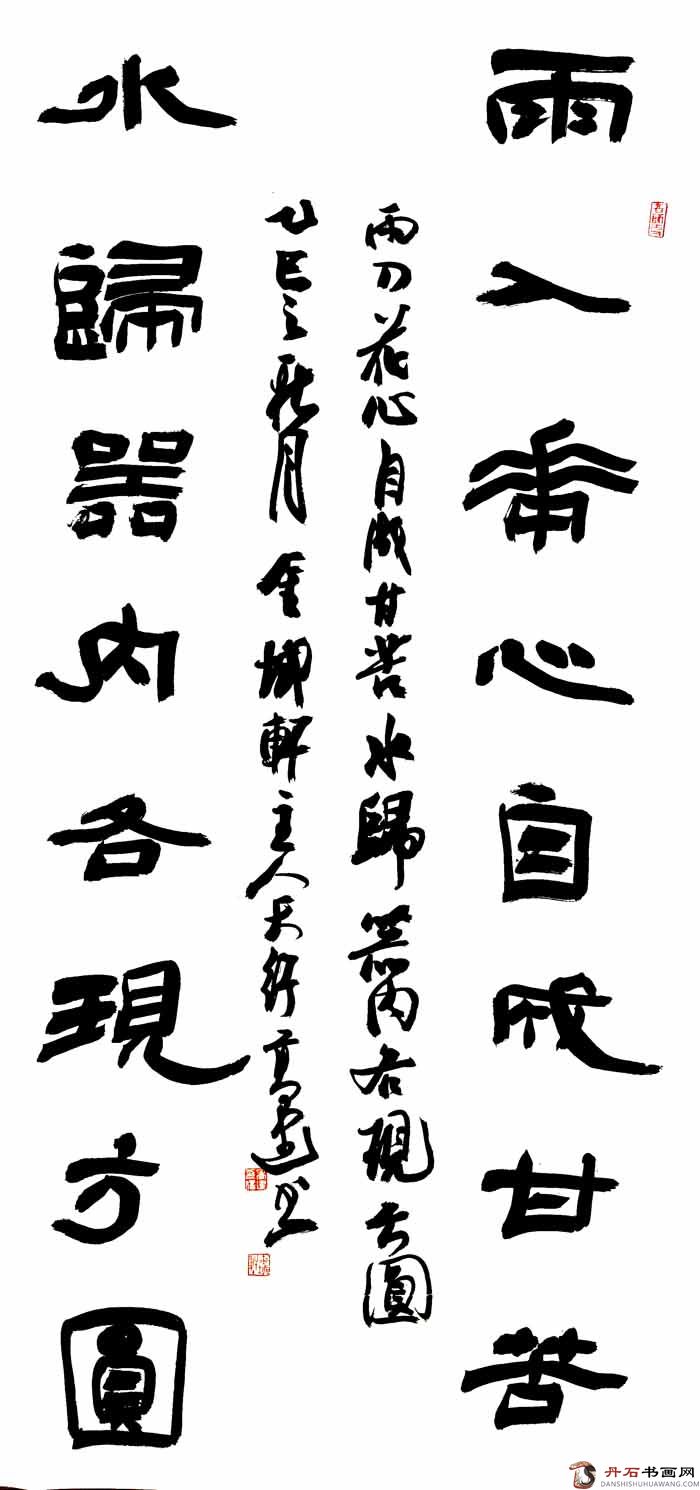 雨入華心自成甘苦
雨入花心自成甘苦水歸器内各現方圓
乙巳之秋月金城軒主人天行高建书
水歸器内各現方圓
丹石书画网
DANSHISHUHUAWANG.COM